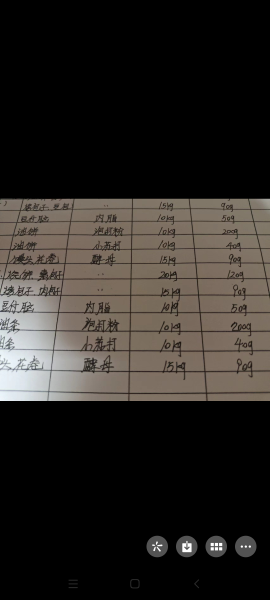 15kg 90g
豆付脑 内脂 10kg 50g
油饼 泡打粉 10kg 200g
油饼 小苏打 10kg 40g
馒头花卷 酵母 15kg 90g
20kg 120g
包子 肉包子 15kg 90g
豆付脑 内脂 10kg 50g
油条 泡打粉 10kg 200g
油条 小苏打 10kg 40g
头花卷 酵母 15kg 90g